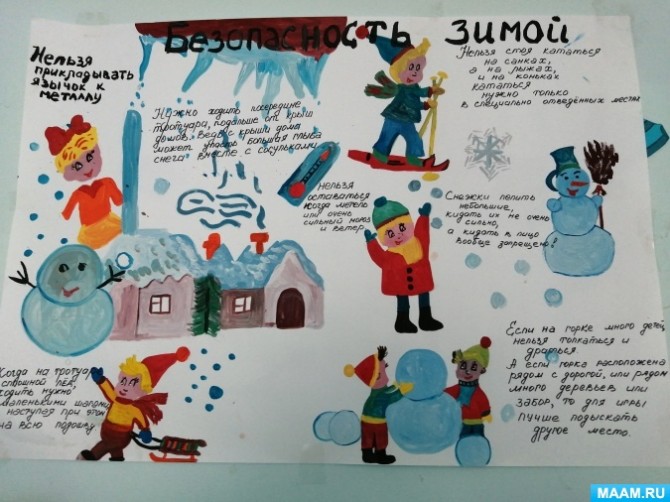 Безопасность зимой
Нельзя
прикладывать
язычок к
металлу
Можно ходить посередине
тротуара, подальше от крыш
домов. Ведь с крыши дома
может упасть большая глыба
снега вместе с сосульками.
Нельзя стоя кататься
на санках,
а на лыжах,
и на коньках
кататься
нужно только
в специально отведённых местах
Нельзя
оставаться
когда метель
или очень
сильный мороз
и ветер
Снежки лепить
небольшие,
кидать их не очень
сильно,
а кидать в лицо
вообще запрещено!
Когда на тротуаре
сплошной лёд,
ходить нужно
маленькими шагами,
наступая при этом
на всю подошву
Если на горке много детей,
нельзя толкаться и
драться.
А если горка расположена
рядом с дорогой, или рядом
много деревьев или
забор, то для игры
лучше подыскать
другое место.
MAAM.RU